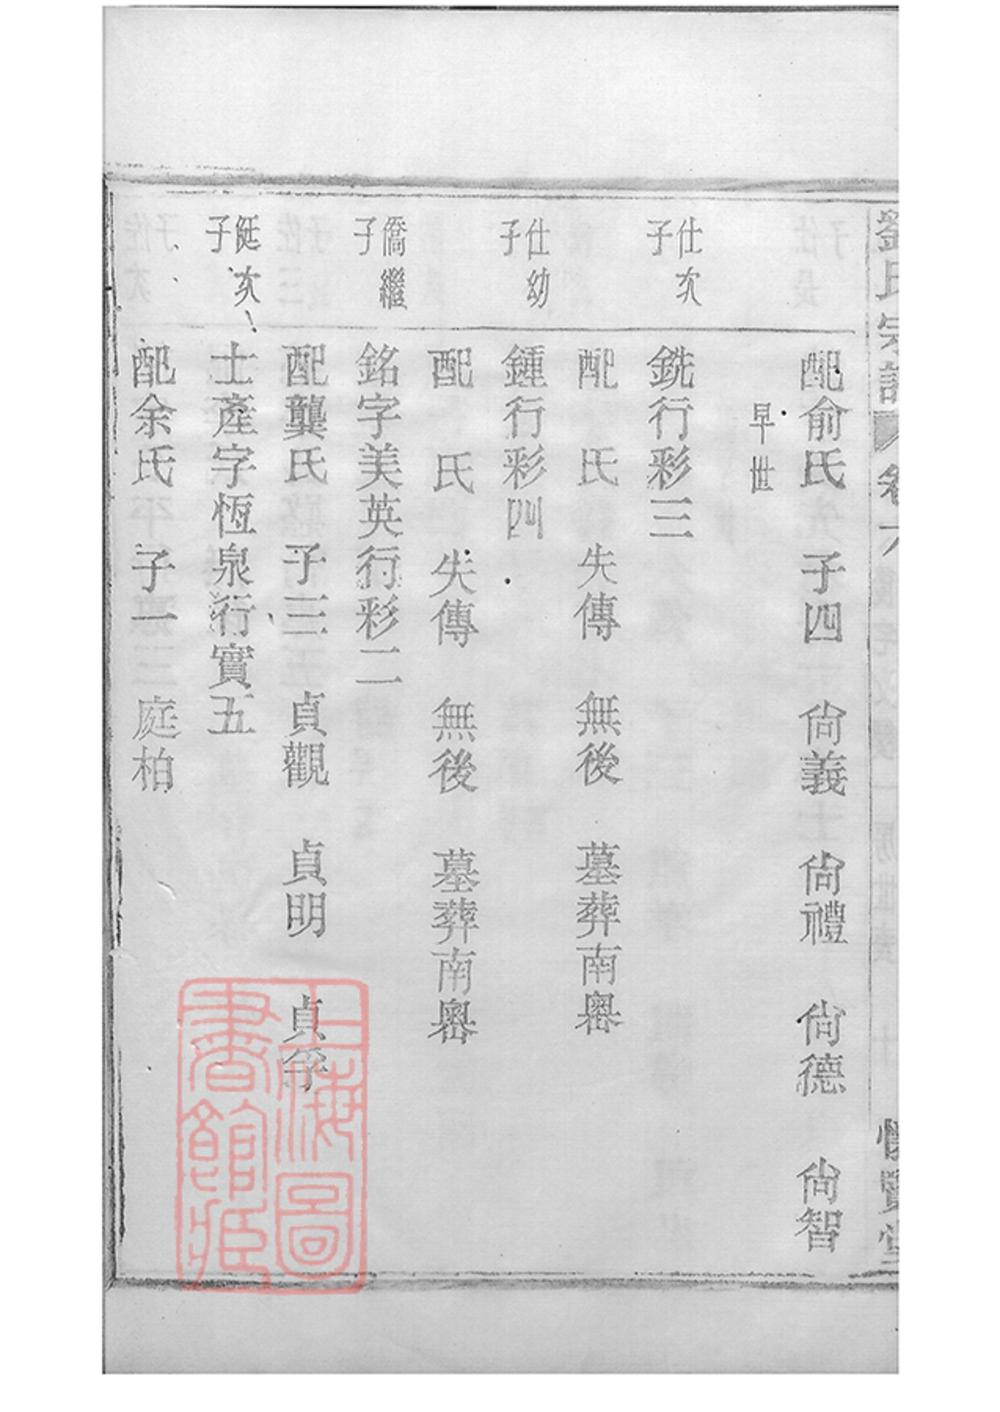 劉氏宗譜 卷
配俞氏 子四 尙義 尙禮 尙德 尙智
早世
仕次子
銑行彩三
配 氏 失傳 無後 墓葬南嶴
仕幼子
鍾行彩四
配 氏 失傳 無後 墓葬南嶴
僑繼子
銘字美英行彩二
配龔氏 子三 貞觀 貞明 貞孚
次子
士產字恆泉行實五
配余氏 子一 庭柏
上海圖書館藏